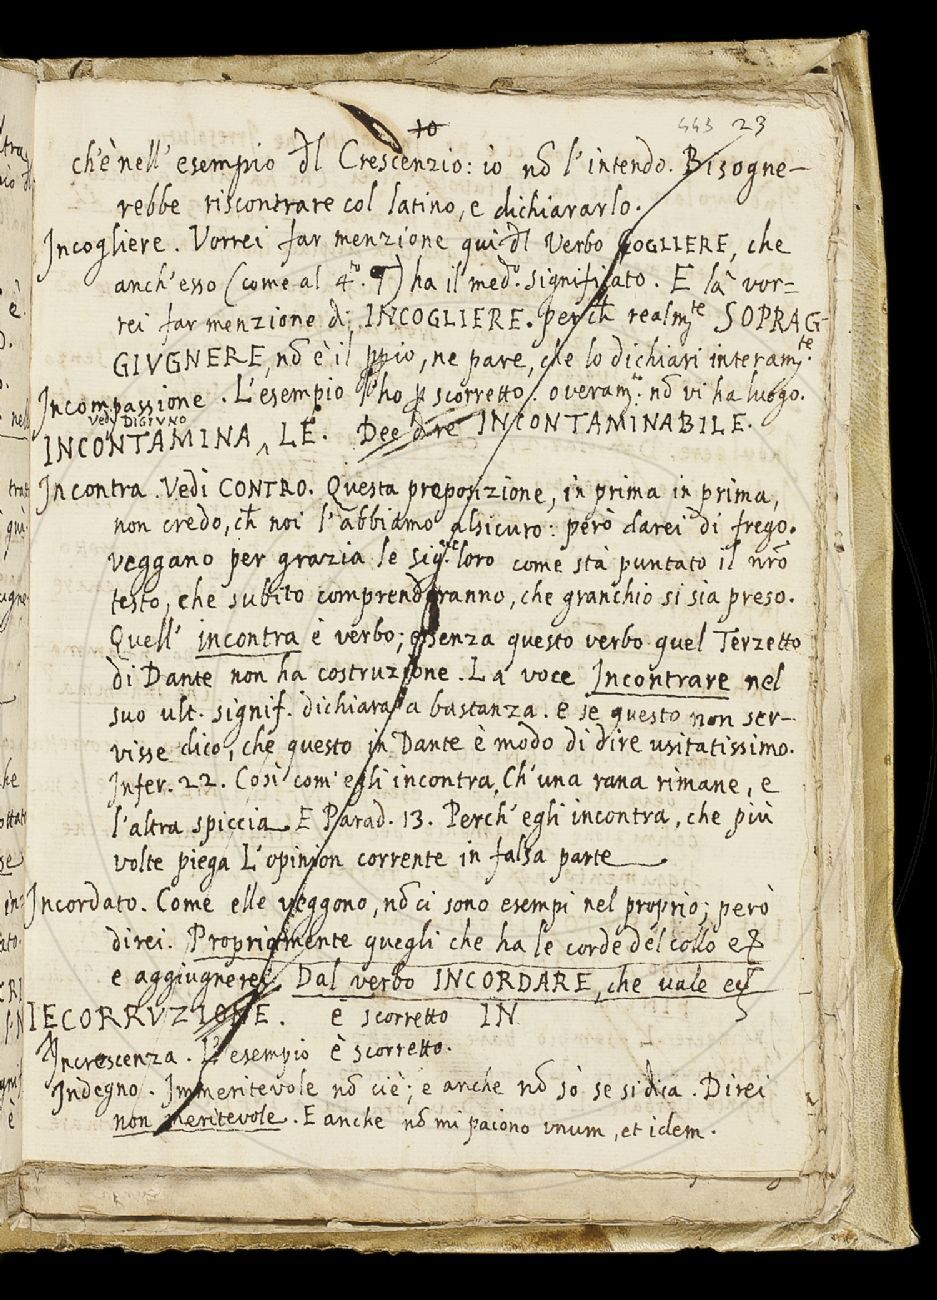 10
443 23
ch'è nell' esempio dl Crescenzio: io nō l'intendo. Bisogne-
rebbe riscontrare col latino, e dichiararlo.
Incogliere. Vorrei far menzione qui dl verbo COGLIERE, che
anch'esso (come al 4º. 9) ha il medº. significato. E là vor=
rei far menzione di INCOGLIERE. perch realmte SOPRAG-
GIVGNERE, nō è il ppio, ne pare, che lo dichiari interamte.
Incompassione. L'esempio l'ho p scorretto. overamte. nō vi ha luogo.
Vedi DIGIVNO
INCONTAMINA ‸ LE. Dee dire INCONTAMINABILE.
Incontra. Vedi CONTRO. Questa preposizione, in prima in prima,
non credo, ch noi l'abbiamo alsicuro: però darei di frego.
veggano per grazia le sigrie loro come sta puntato il nrō
testo, che subito comprenderanno, che granchio si sia preso.
Quell' incontra è verbo; e senza questo verbo quel Terzetto
di Dante non ha costruzione. La voce Incontrare nel
suo ult. signif. dichiara a bastanza. e se questo non ser-
visse dico, che questo in Dante è modo di dire usitatissimo.
Infer. 22. Così com' egli incontra, Ch'una rana rimane, e
l'altra spiccia E Parad. 13. Perch' egli incontra, che più
volte piega L'opinion corrente in falsa parte
Incordato. Come elle veggono, nō ci sono esempi nel proprio; però
direi. Propriamente quegli che ha le corde del collo e&
e aggiugnerei Dal verbo INCORDARE, che vale e&
IECORRVZIONE. è scorretto IN
Increscenza. L'esempio è scorretto.
Indegno. Immeritevole nō ciè; e anche nō sò se si dica. Direi
non meritevole. E anche nō mi paiono vnum, et idem.